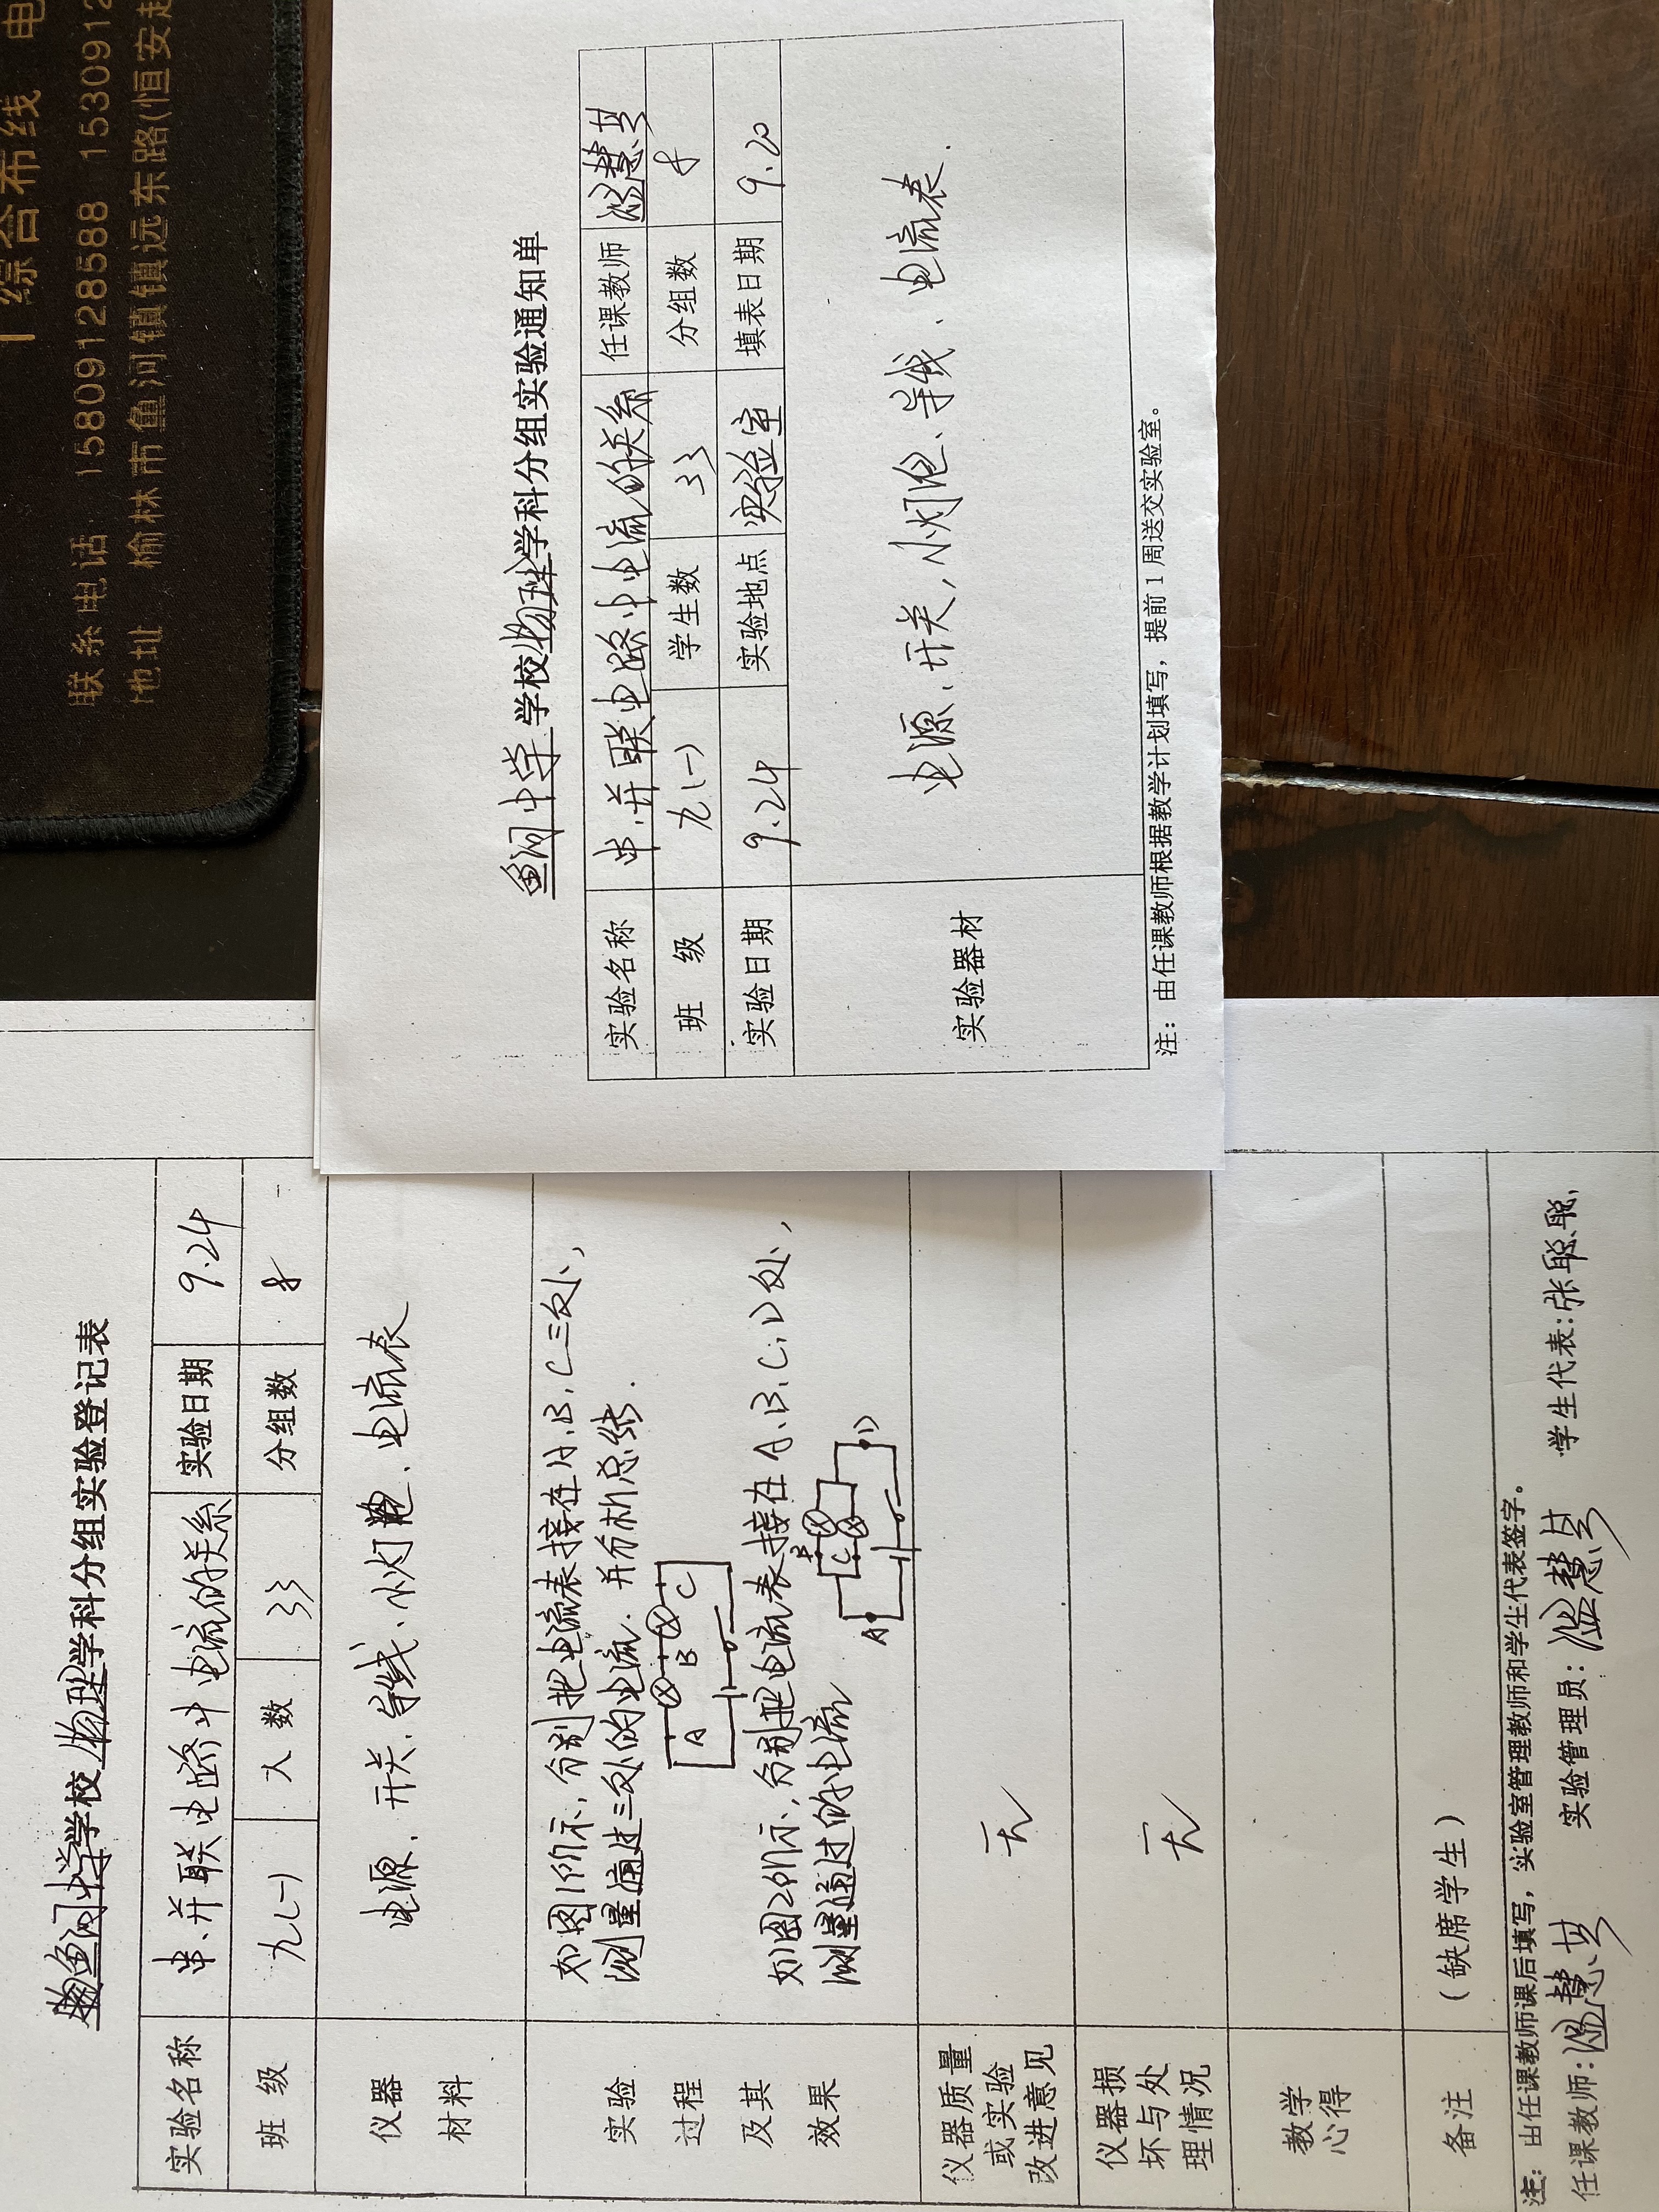 综合布线 电
联系电话 15809128588 1530912
地址 榆林市鱼河镇镇远东路(恒安
鱼河中学学校物理学科分组实验通知单
实验名称 串、并联电路中电流的关系 任课教师 温慧其
班 级 九(一) 学生数 33 分组数 8
实验日期 9.24 实验地点 实验室 填表日期 9.20
实验器材 电源、开关、小灯泡、导线、电流表.
注:由任课教师根据教学计划填写,提前1周送交实验室。
鱼河中学学校物理学科分组实验登记表
实验名称 串、并联电路中电流的关系 实验日期 9.24
班 级 九(一) 人 数 33 分组数 8
仪器
材料
电源、开关、导线、小灯泡、电流表
实验
过程
及其
效果
如图1所示,分别把电流表接在A、B、C三处,
测量通过三处的电流.并分析总结.
A B C
如图2所示,分别把电流表接在A、B、C、D处,
测量通过的电流
A B C D
仪器质量
或实验
改进意见
无
仪器损
坏与处
理情况
无
教学
心得
备注 (缺席学生)
注:由任课教师课后填写,实验室管理教师和学生代表签字。
任课教师:温慧其 实验管理员:温慧其 学生代表:张聪聪